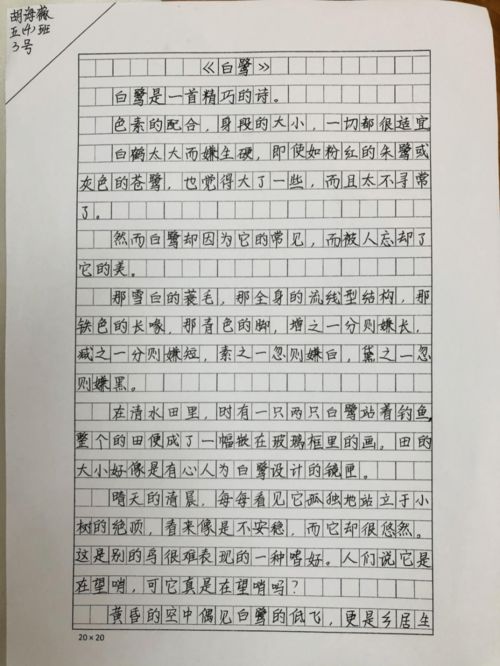 胡海薇
五(4)班
3号
《白鹭》
白鹭是一首精巧的诗。
色素的配合，身段的大小，一切都很适宜
白鹤太大而嫌生硬，即使如粉红的朱鹭或
灰色的苍鹭，也觉得大了一些，而且太不寻常
了。
然而白鹭却因为它的常见，而被人忘却了
它的美。
那雪白的蓑毛，那全身的流线型结构，那
铁色的长喙，那青色的脚，增之一分则嫌长，
减之一分则嫌短，素之一忽则嫌白，黛之一忽
则嫌黑。
在清水田里，时有一只两只白鹭站着钓鱼
整个的田便成了一幅嵌在玻璃框里的画。田的
大小好像是有心人为白鹭设计的镜匣。
晴天的清晨，每每看见它孤独地站立于小
树的绝顶，看来像是不安稳，而它却很悠然。
这是别的鸟很难表现的一种嗜好。人们说它是
在望哨，可它真是在望哨吗？
黄昏的空中偶见白鹭的低飞，更是乡居生
20×20